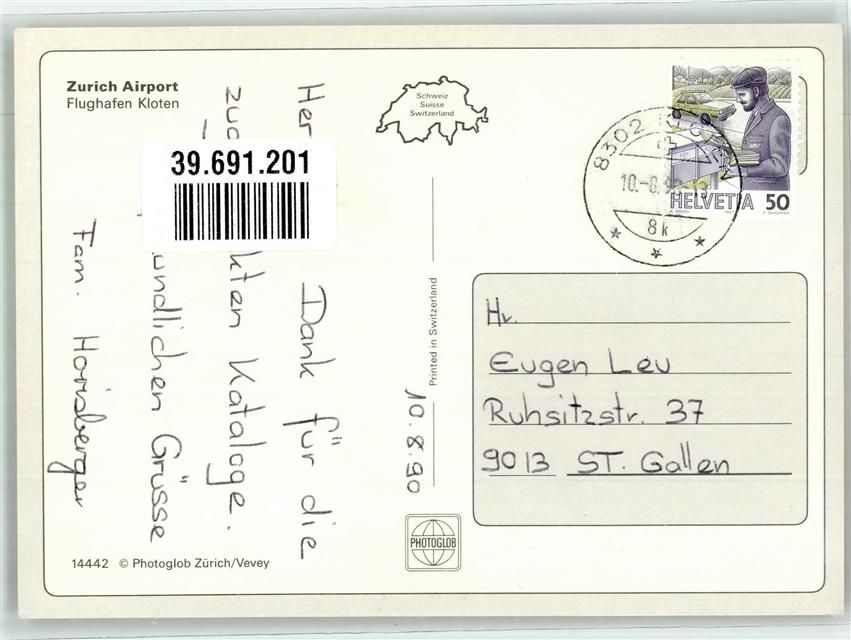 Zurich Airport
Flughafen Kloten
Schweiz
Suisse
Switzerland
39.691.201
HELVETIA 50
8302
10.-8.90-13
8k
Her Dank für die
zug kten Kataloge.
undlichen Grüsse
Fam. Horisberger
10.8.90
Printed in Switzerland
Hr.
Eugen Leu
Ruhsitzstr. 37
9013 ST. Gallen
PHOTOGLOB
14442 © Photoglob Zürich/Vevey